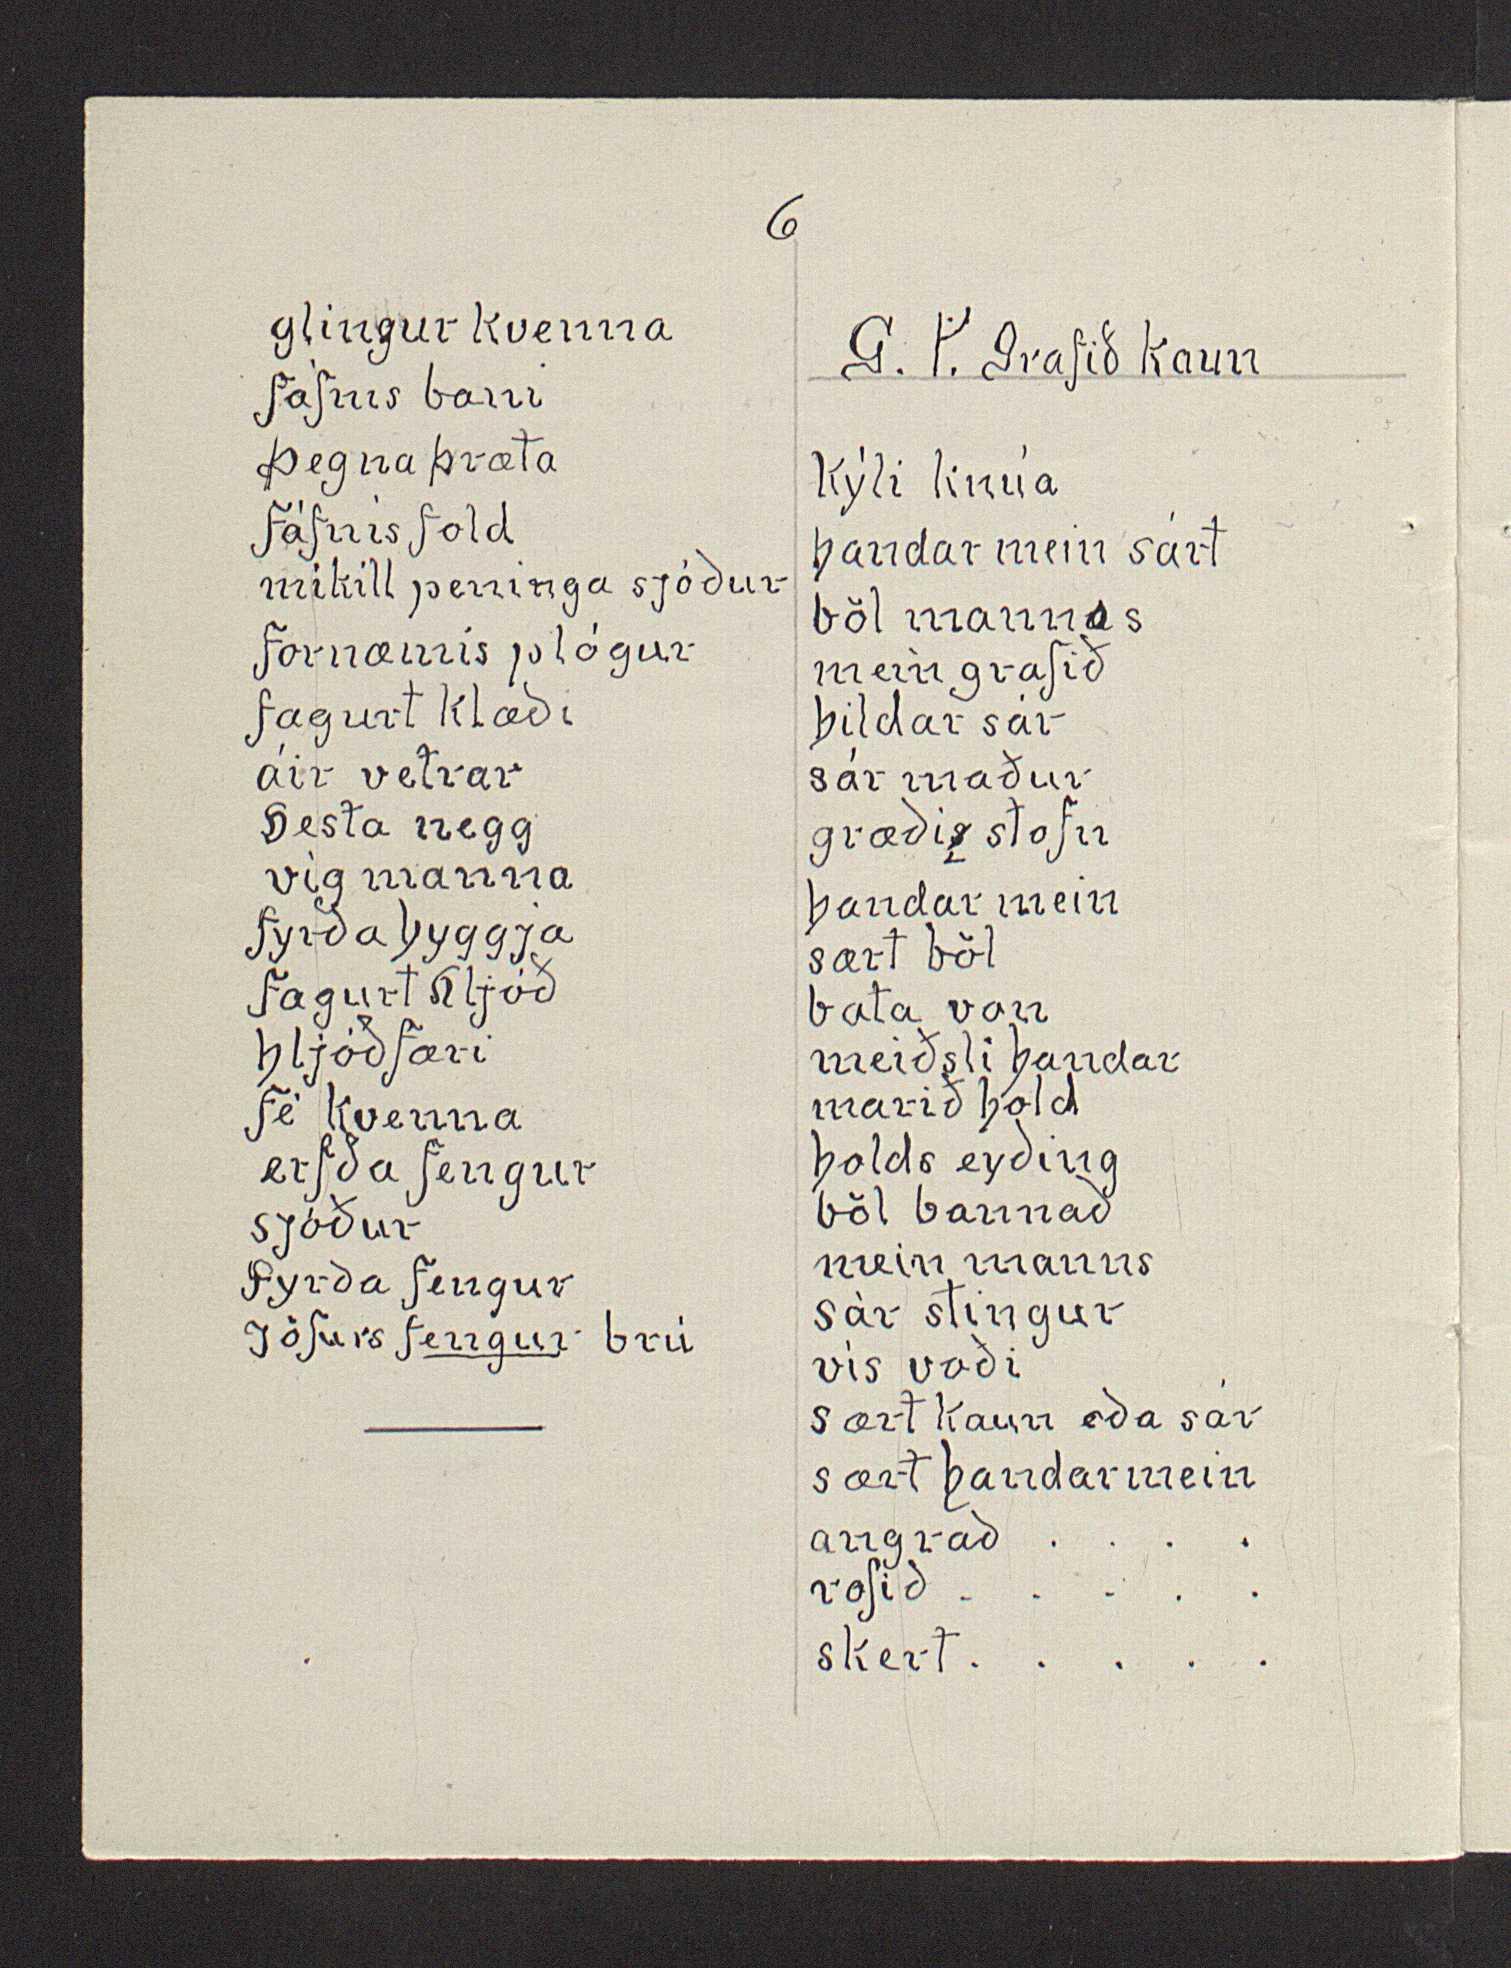 6
glingur kvenna
fáfnis bani
þegna þræta
fáfnis fold
mikill peninga sjóður
fornæmis plógur
fagurt klæði
áir vetrar
hesta negg
víg manna
fyrða hyggja
fagurt hljóð
hljóðfæri
fé kvenna
erfða fengur
sjóður
Fyrda fengur
Jöfurs fengur brú
G. Ý. Grafið kaun
kýli knúa
handar mein sárt
böl manns
mein grafið
hildar sár
sár maður
græðis stofn
handar mein
sært böl
bata von
meiðsli handar
marið hold
holds eyðing
böl bannað
mein manns
sár stingur
vís voði
sært kaun eða sár
sært handarmein
angrað . . . .
rofið . . . . .
skert . . . . .